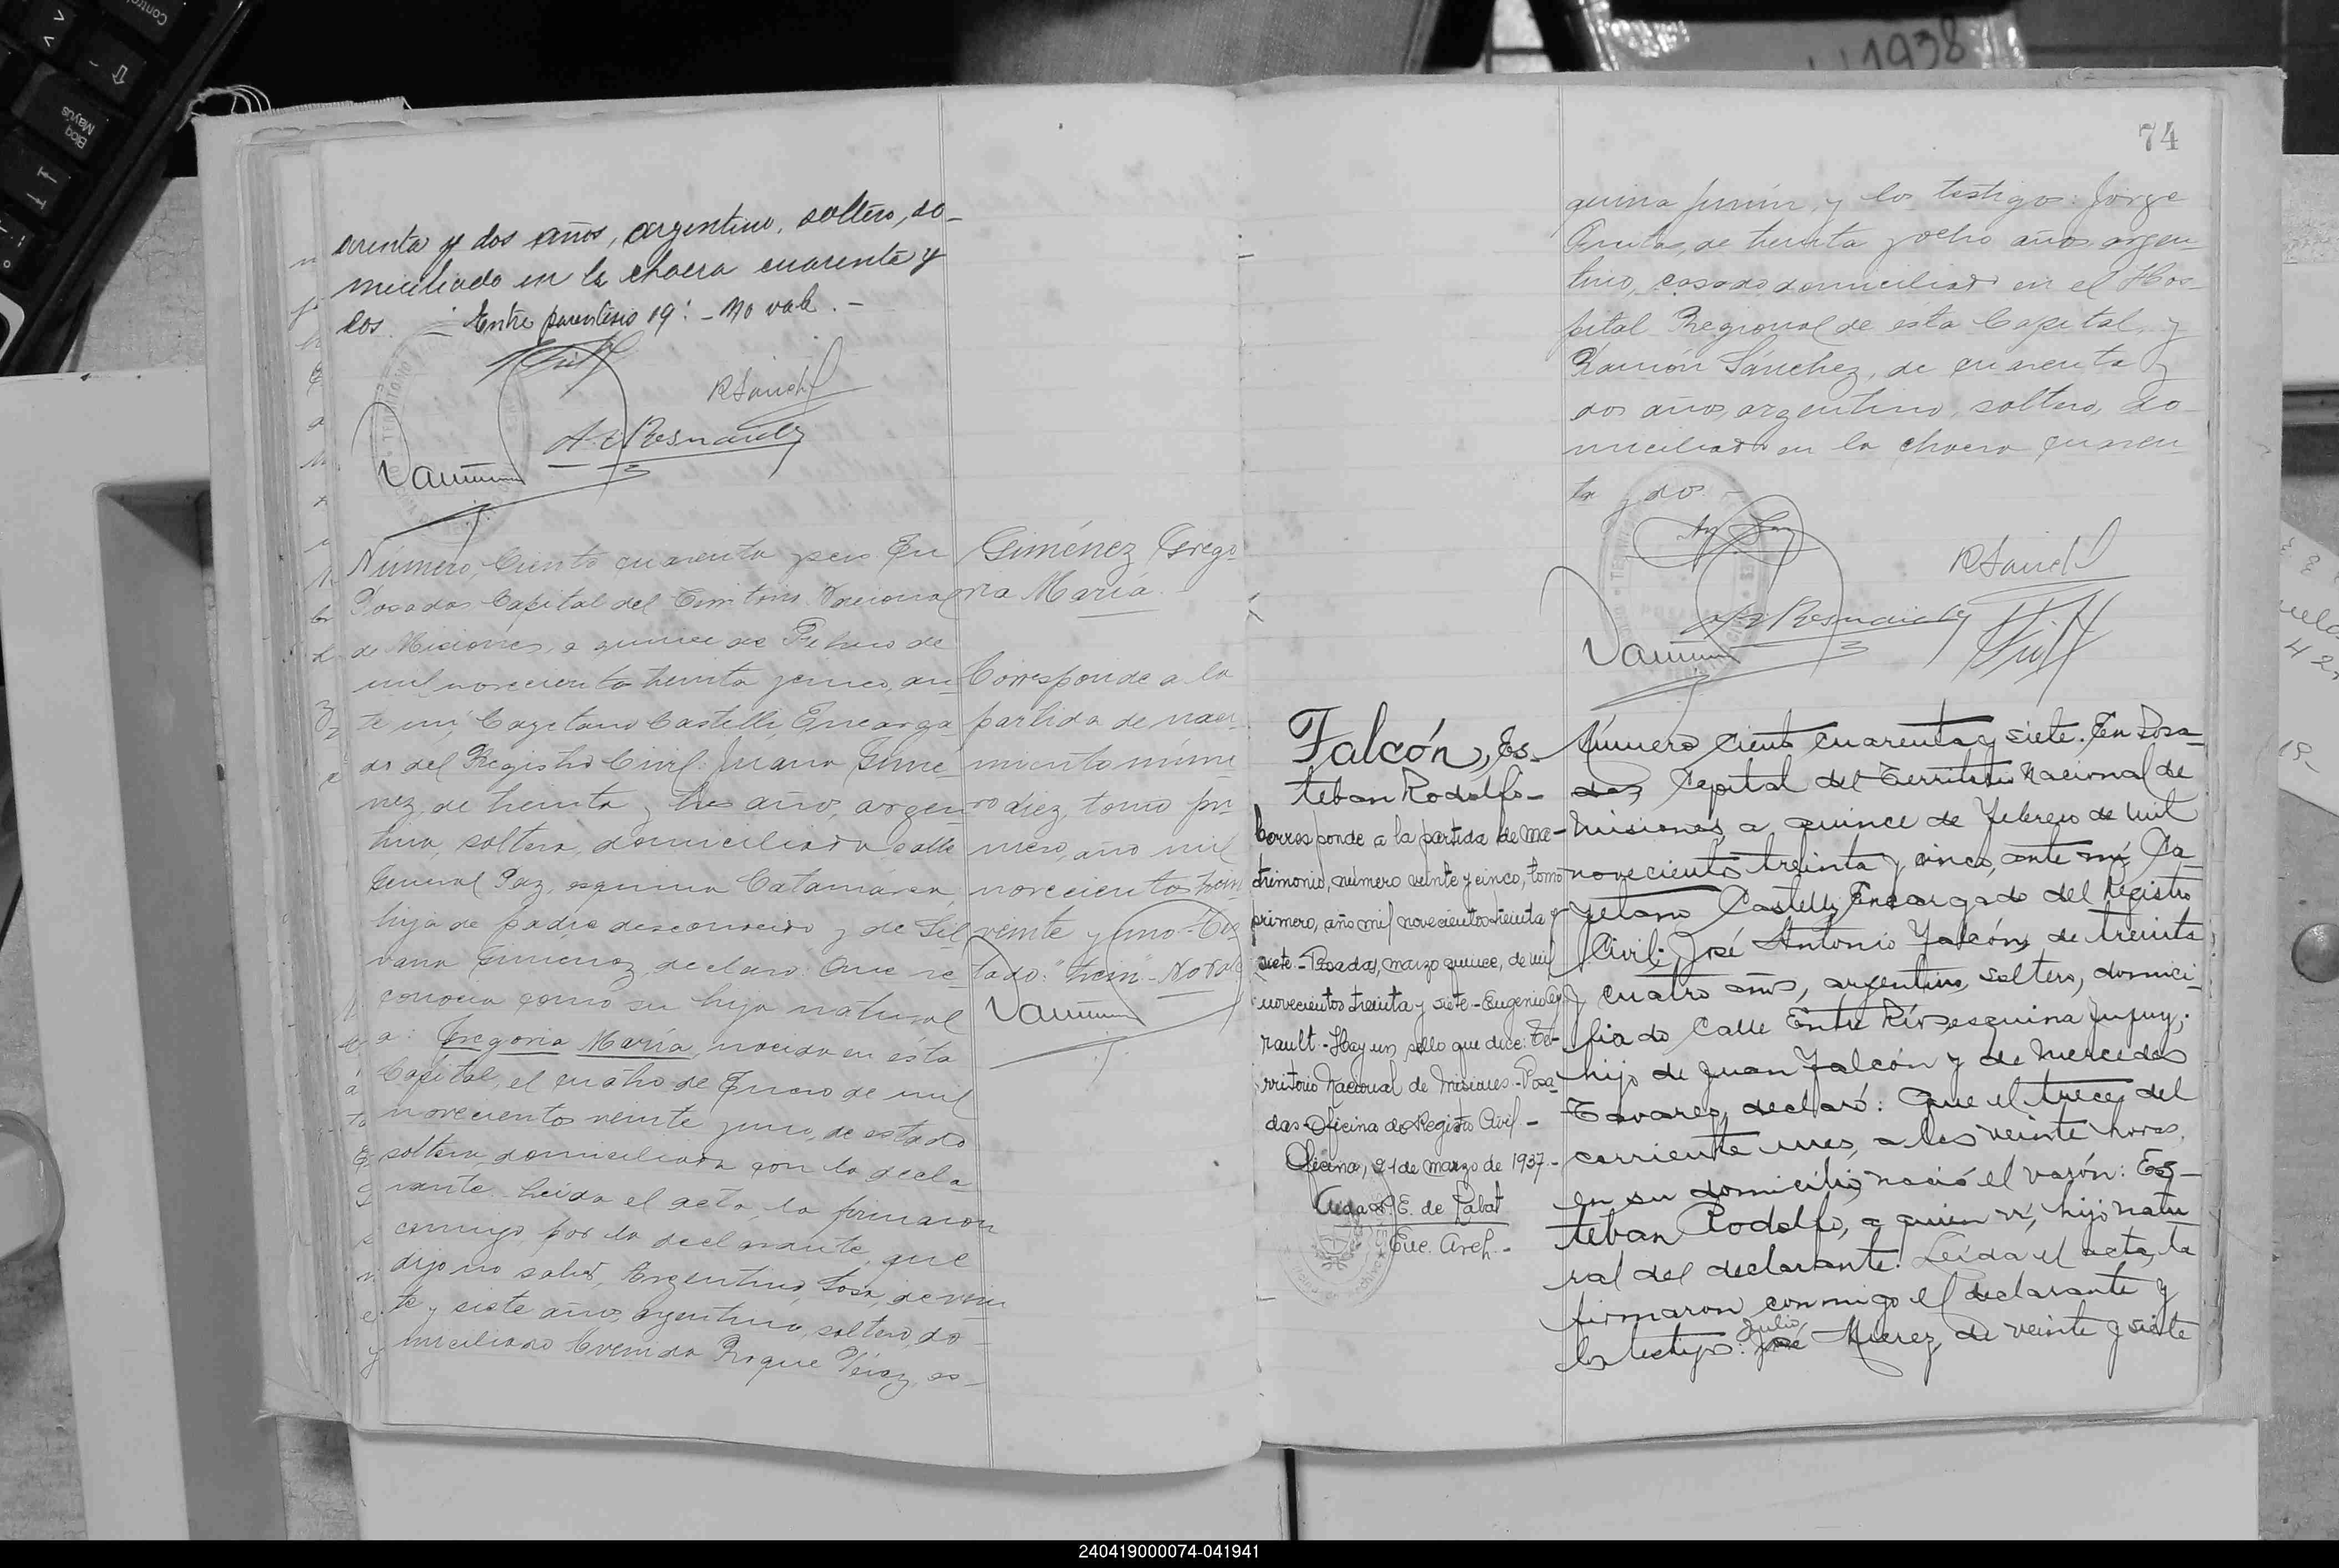 arenta y dos años, argentino, soltero, do-
miciliado en la chacra cuarenta y
dos. - Entre parentesis 19: - No vale. -
R Sanch
Número, Ciento cuarenta y seis. En
Posadas Capital del Territorio Nacional
de Misiones, a quince de Febrero de
mil novecientos treinta y cinco, an
te mi, Cayetano Castelli, Encarga
do del Registro Civil: Juana Gime
nez, de treinta y tres años, argen
tina, soltera, domiciliada calle
General Paz, esquina Catamarca,
hija de padre desconocido y de Sil
vana Gimenez, declaro: Que re
conocia como su hija natural
a: Gregoria María, nacida en ésta
Capital, el cuatro de Enero de mil
novecientos veinte y uno, de estado
soltera, domiciliada con la decla
rante. Leída el acta, la firmaron
conmigo por la declarante, que
dijo no saber, Argentino, Sosa, de vein
te y siete años, argentino, soltero, do-
miciliado Avenida Roque Pérez, es-
Giménez Grego-
ria María.
Corresponde a la
partida de naci-
miento núme-
ro diez, tomo pri
mero, año mil
novecientos trein
veinte y uno - Tes
tado: "trein" - No vale
74
quina Junín, y los testigos: Jorge
de treinta y ocho años argen-
tino, casado domiciliado en el Hos-
pital Regional de ésta Capital, y
Ramón Sánchez, de cuarenta y
dos años, argentino, soltero, do-
miciliado en la chacra cuaren-
ta y dos. -
R Sanch
Falcón, Es-
teban Rodolfo-
Corresponde a la partida de ma-
trimonio, número veinte y cinco, tomo
primero, año mil novecientos treinta y
siete.- Posadas, marzo quince, de mil
novecientos treinta y siete - Eugenio Ay
rault - Hay un sello que dice: Te-
rritorio Nacional de Misiones - Posa-
das - Oficina de Registro Civil. -
Oficina, 21 de marzo de 1937.-
E. de Labat
Enc. Arch. -
Número ciento cuarenta y siete. En Posa-
das Capital del Territorio Nacional de
Misiones, a quince de Febrero de mil
novecientos treinta y cinco, ante mí Ca-
yetano Castelli, Encargado del Registro
Civil: José Antonio Falcón, de treinta
y cuatro años, argentino, soltero, domici-
liado Calle Entre Ríos esquina Jujuy;
hijo de Juan Falcón y de Mercedes
Tavares, declaró: Que el trece del
corriente mes, a las veinte horas,
en su domicilio, nació el varón: Es-
teban Rodolfo, a quien vi, hijo natu
ral del declarante. Leída el acta, la
firmaron conmigo el declarante y
Julio
los testigos: José Merez, de veinte y siete
240419000074-041941